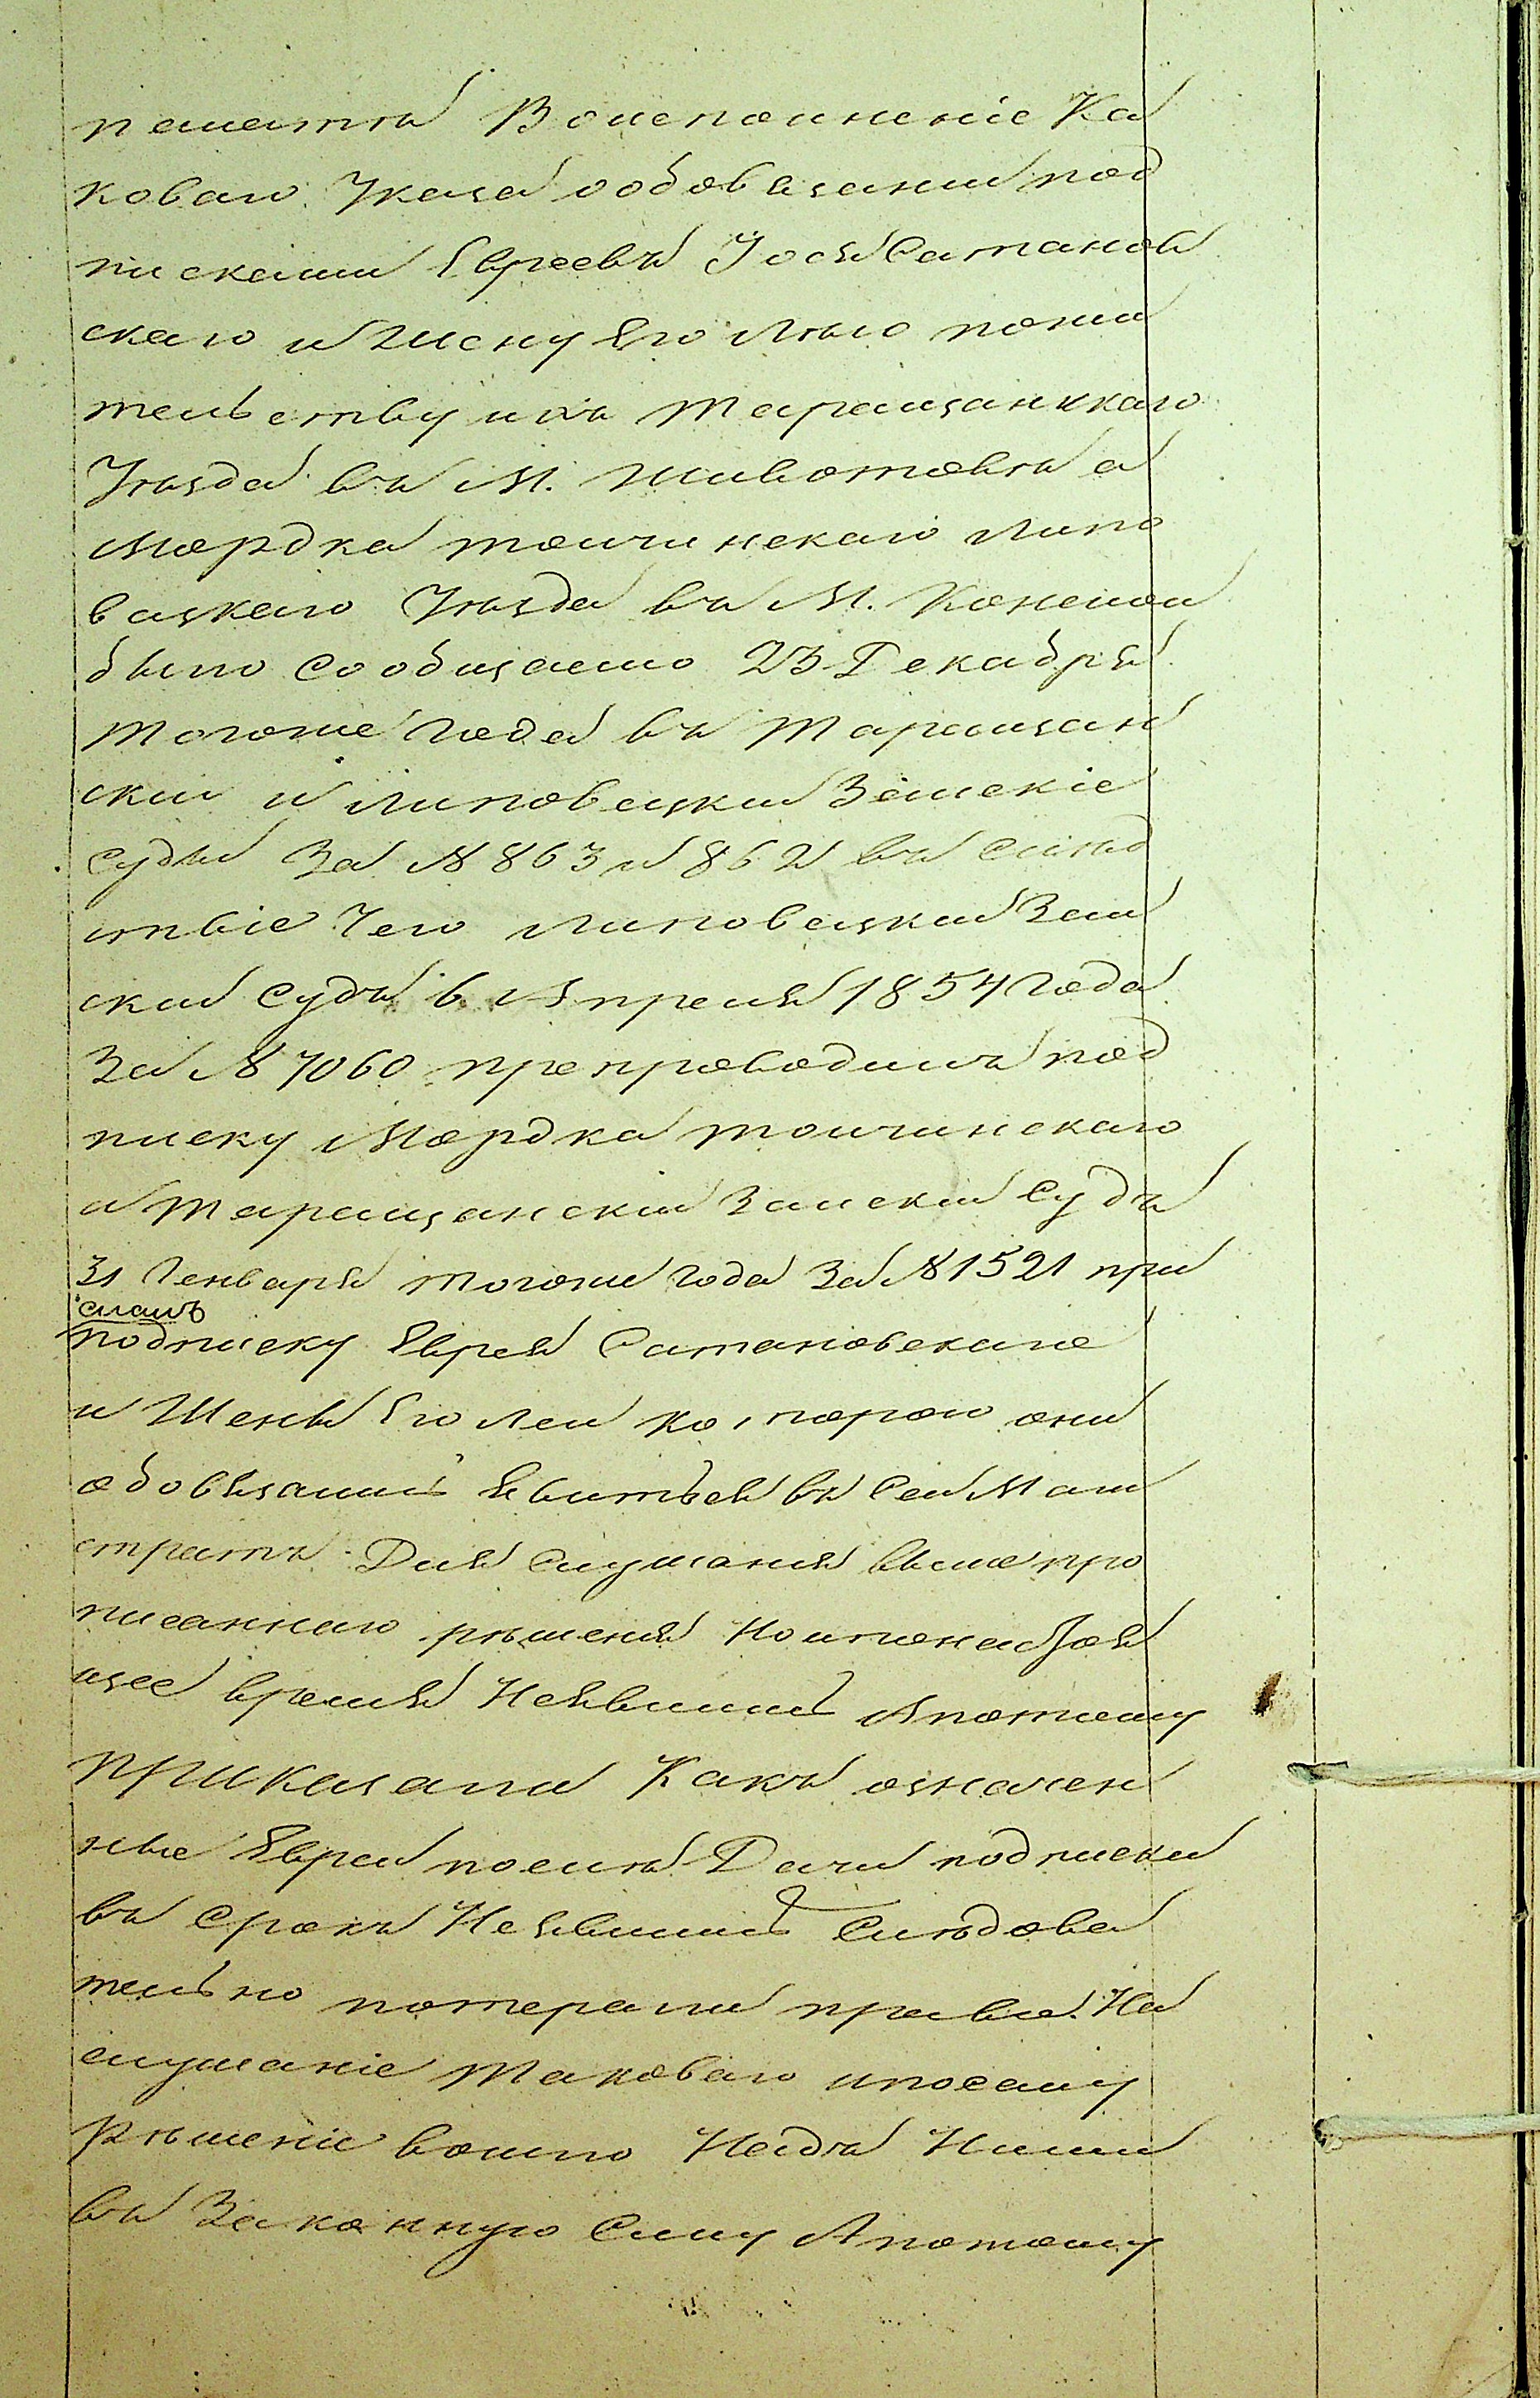 палаты Воисполненіе Ка
коваго Указа ообовязаніи под
писками Евреевъ Іося Сатанов
скаго и Жену Его Лѣю пожи
тельству ихъ Таращанскаго
Уѣзда въ М. Животовкѣ а
Мордка Толчинскаго Липо
вецкаго Уѣзда въ М. Конелой
было Сообщаемо 23 Декабря
Тогоже Года въ Таращан
скій и Липовецкій Земскіе
Суды За № 863 и 862 въ Слѣд
ствіе Чего Липовецкій Зем
скій Судъ 6 Апреля 1854 Года
За № 7060 препроводилъ под
писку Мордка Толчинскаго
а Таращанскій Земскій Судъ
31 Генваря Тогоже Года За № 1521 при
слалъ
подписку Еврея Сатановскаго
и Жены Его Леи которою они
обовязались Явиться въ Сей Маги
стратъ Для Слушанія вышепро
писаннаго рѣшенія Но и понастоя
щее время Неявились Апотому
приказали Какъ означен
ные Евреи послѣ Дачи подписки
въ Срокъ Неявились Слѣдова
тельно потеряли право На
слушаніе Таковаго ипосему
Рѣшеніе вошло Надъ Ними
въ Законную Силу Апотому